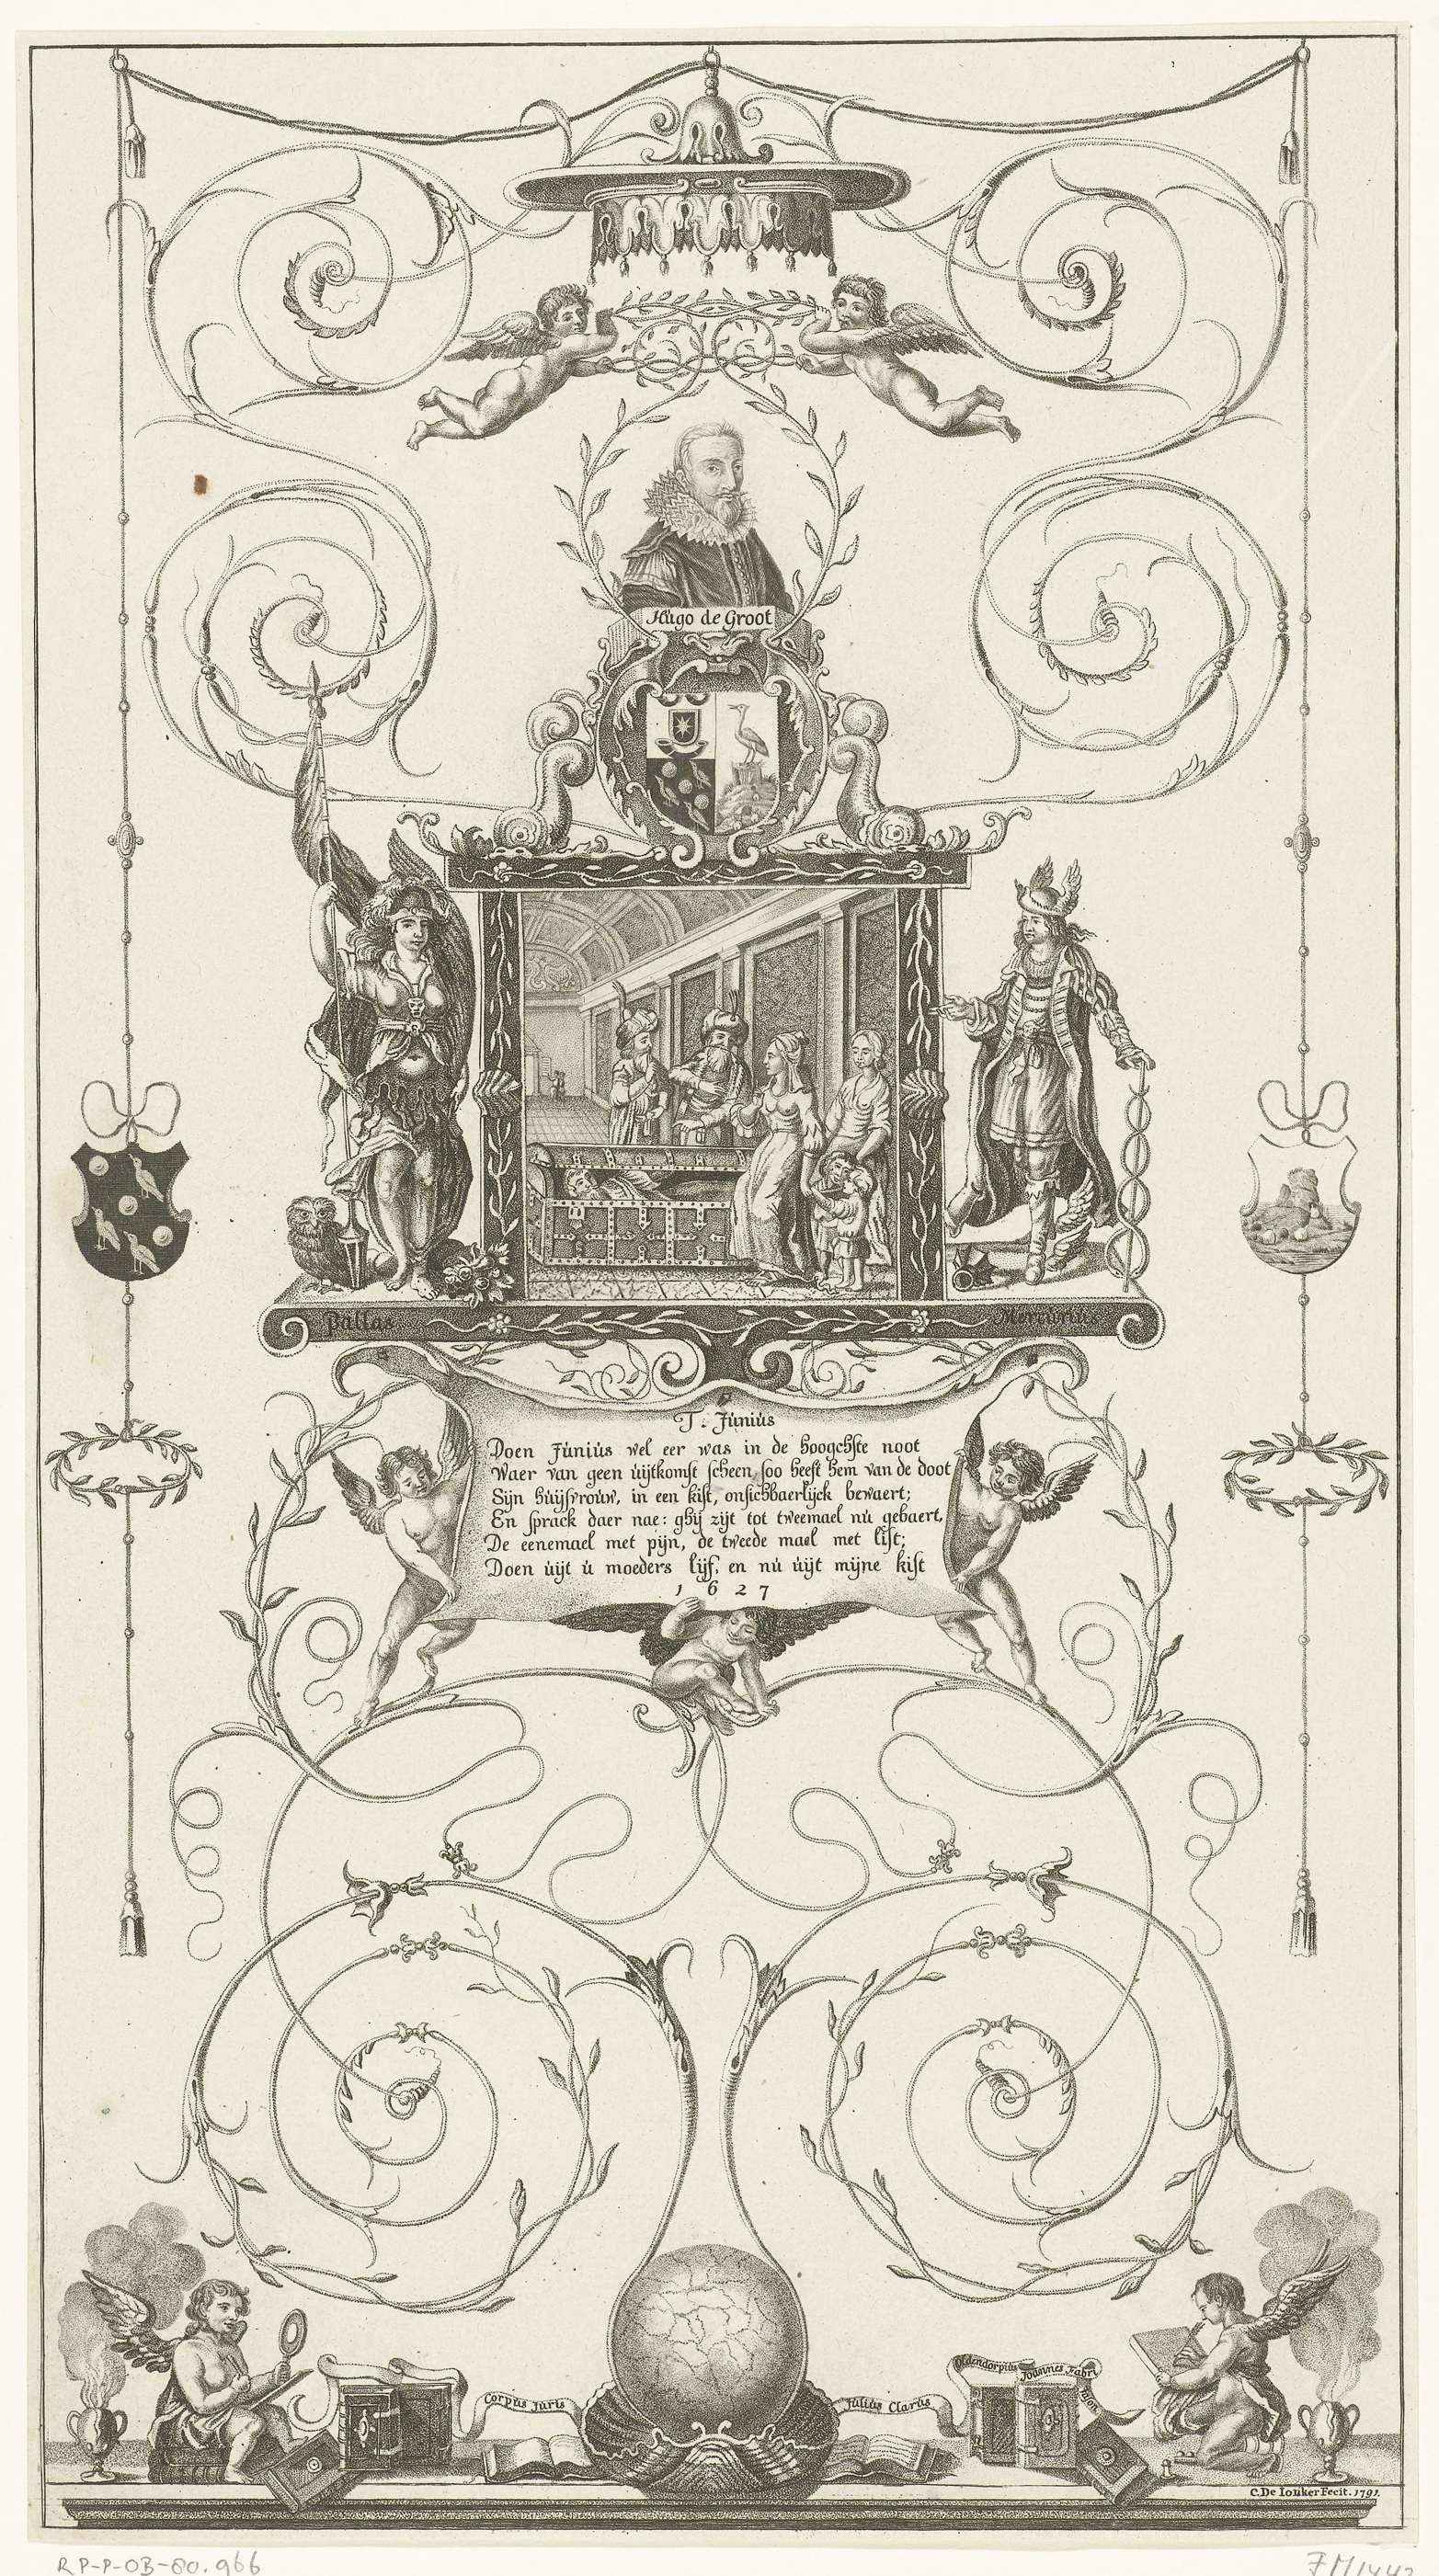 Hugo de Groot
Pallas
Mercurius
T. Junius
Doen Junius wel eer was in de hoogchste noot
Waer van geen uijtkomst scheen, soo heeft hem van de doot
Sijn huijsvrouw, in een kist, onsichbaerlijck bewaert;
En sprack daer nae: ghij zijt tot tweemael nu gebaert,
De eenemael met pijn, de tweede mael met list;
Doen uijt u moeders lijf, en nu uijt mijne kist
1627
Corpus Juris
Julius Clarus
Oldendorpius
Joannes Fabri
C. De Jonker Fecit. 1791.
RP-P-OB-80.966